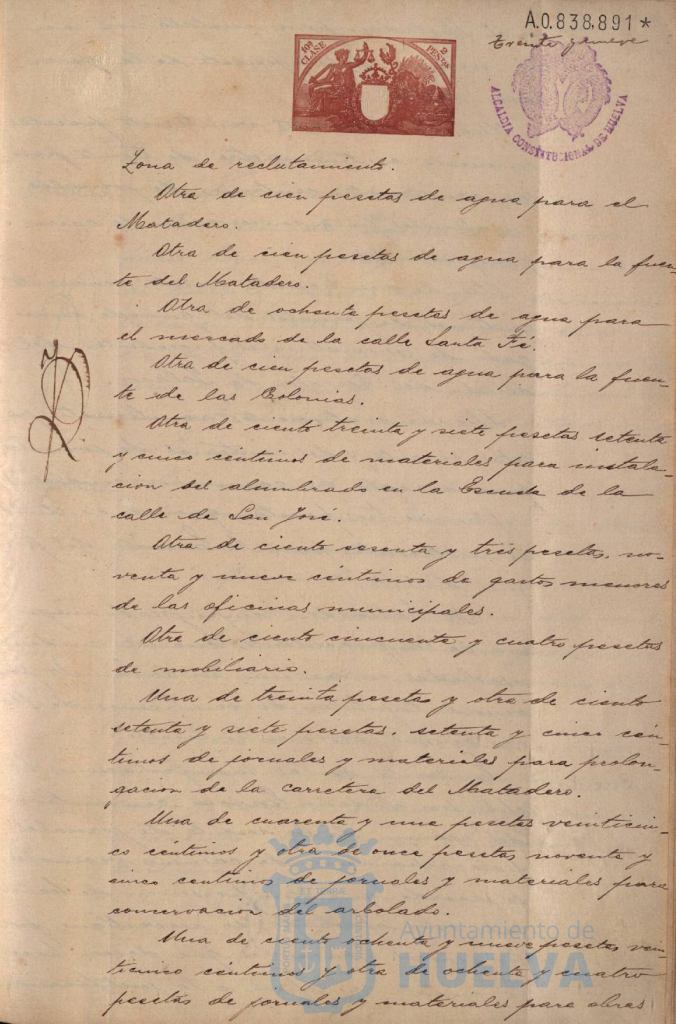 A.0.838,891*
Treinta y nueve
10ª CLASE
2 PESETAS
ALCALDIA CONSTITUCIONAL DE HUELVA
Zona de reclutamiento.
Otra de cien pesetas de agua para el
Matadero.
Otra de cien pesetas de agua para la fuen-
te del Matadero.
Otra de ochenta pesetas de agua para
el mercado de la calle Santa Fé.
Otra de cien pesetas de agua para la fuen-
te de las Colonias.
Otra de ciento treinta y siete pesetas setenta
y cinco céntimos de materiales para instala-
ción del alumbrado en la Escuela de la
calle de San José.
Otra de ciento sesenta y tres pesetas, no-
venta y nueve céntimos de gastos menores
de las oficinas municipales.
Otra de ciento cincuenta y cuatro pesetas
de mobiliario.
Una de treinta pesetas y otra de ciento
setenta y siete pesetas, setenta y cinco cén-
timos de jornales y materiales para prolon-
gacion de la carretera del Matadero.
Una de cuarenta y una pesetas veinticin-
co céntimos y otra de once pesetas noventa y
cinco centimos de jornales y materiales para
conservacion del arbolado.
Una de ciento ochenta y nueve pesetas vein-
ticinco céntimos y otra de ochenta y cuatro
pesetas de jornales y materiales para obras
Ayuntamiento de
HUELVA